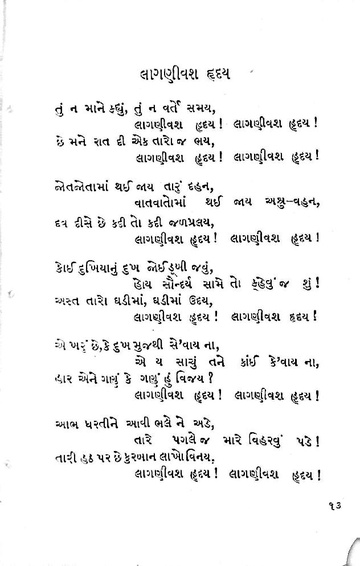 લાગણીવશ હૃદય
તું ન માને કહ્યું, તું ન વર્તે સમય,
લાગણીવશ હૃદય! લાગણીવશ હૃદય!
છે મને રાત દી એક તારો જ ભય,
લાગણીવશ હૃદય! લાગણીવશ હૃદય!
જોતજોતામાં થઈ જાય તારું દહન,
વાતવાતોમાં થઈ જાય અશ્રુ–વહન,
દવ દીસે છે કદી તો કદી જળપ્રલય,
લાગણીવશ હૃદય! લાગણીવશ હૃદય!
કોઈ દુખિયાનું દુખ જોઈ ડૂખી જવું,
હોય સૌન્દર્ય સામે તો કહેવું જ શું!
અસ્ત તારો ઘડીમાં, ઘડીમાં ઉદય,
લાગણીવશ હૃદય! લાગણીવશ હૃદય!
એ ખરું છે, કે દુખ મુજથી સે'વાય ના,
એ ય સાચું તને કાંઈ કે'વાય ના,
હાર એને ગણું કે ગણું હું વિજય?
લાગણીવશ હૃદય! લાગણીવશ હૃદય!
આભ ધરતીને આવી ભલે ને અડે,
તારે પગલે જ મારે વિહરવું પડે!
તારી હઠ પર છે કુરબાન લાખો વિનય,
લાગણીવશ હૃદય! લાગણીવશ હૃદય!
૧૩